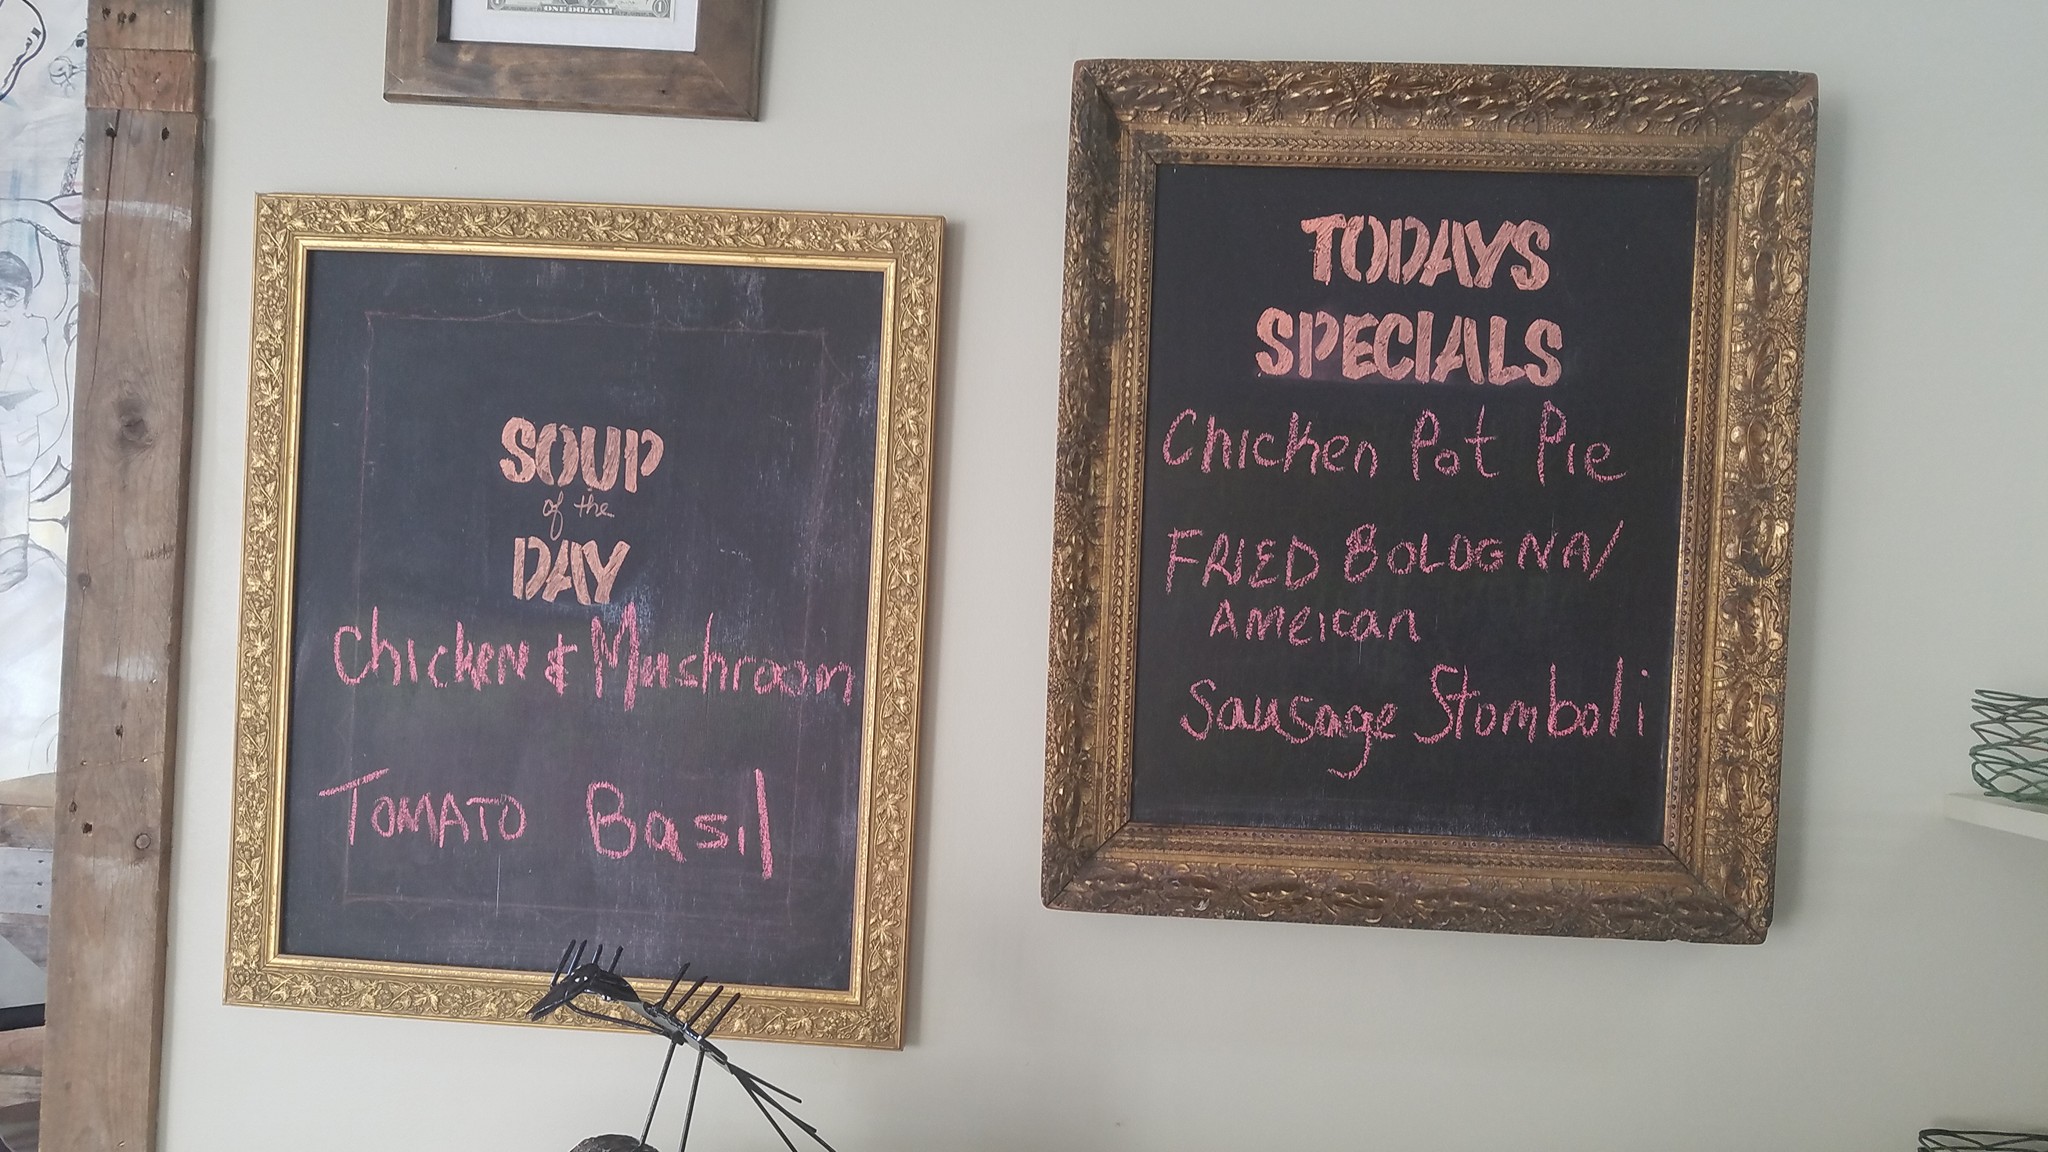 ONE DOLLAR
SOUP
of the
DAY
Chicken & Mushroom
TOMATO Basil
TODAYS
SPECIALS
Chicken Pot Pie
FRIED BOLOGNA/
AMEICAN
Sausage Stomboli